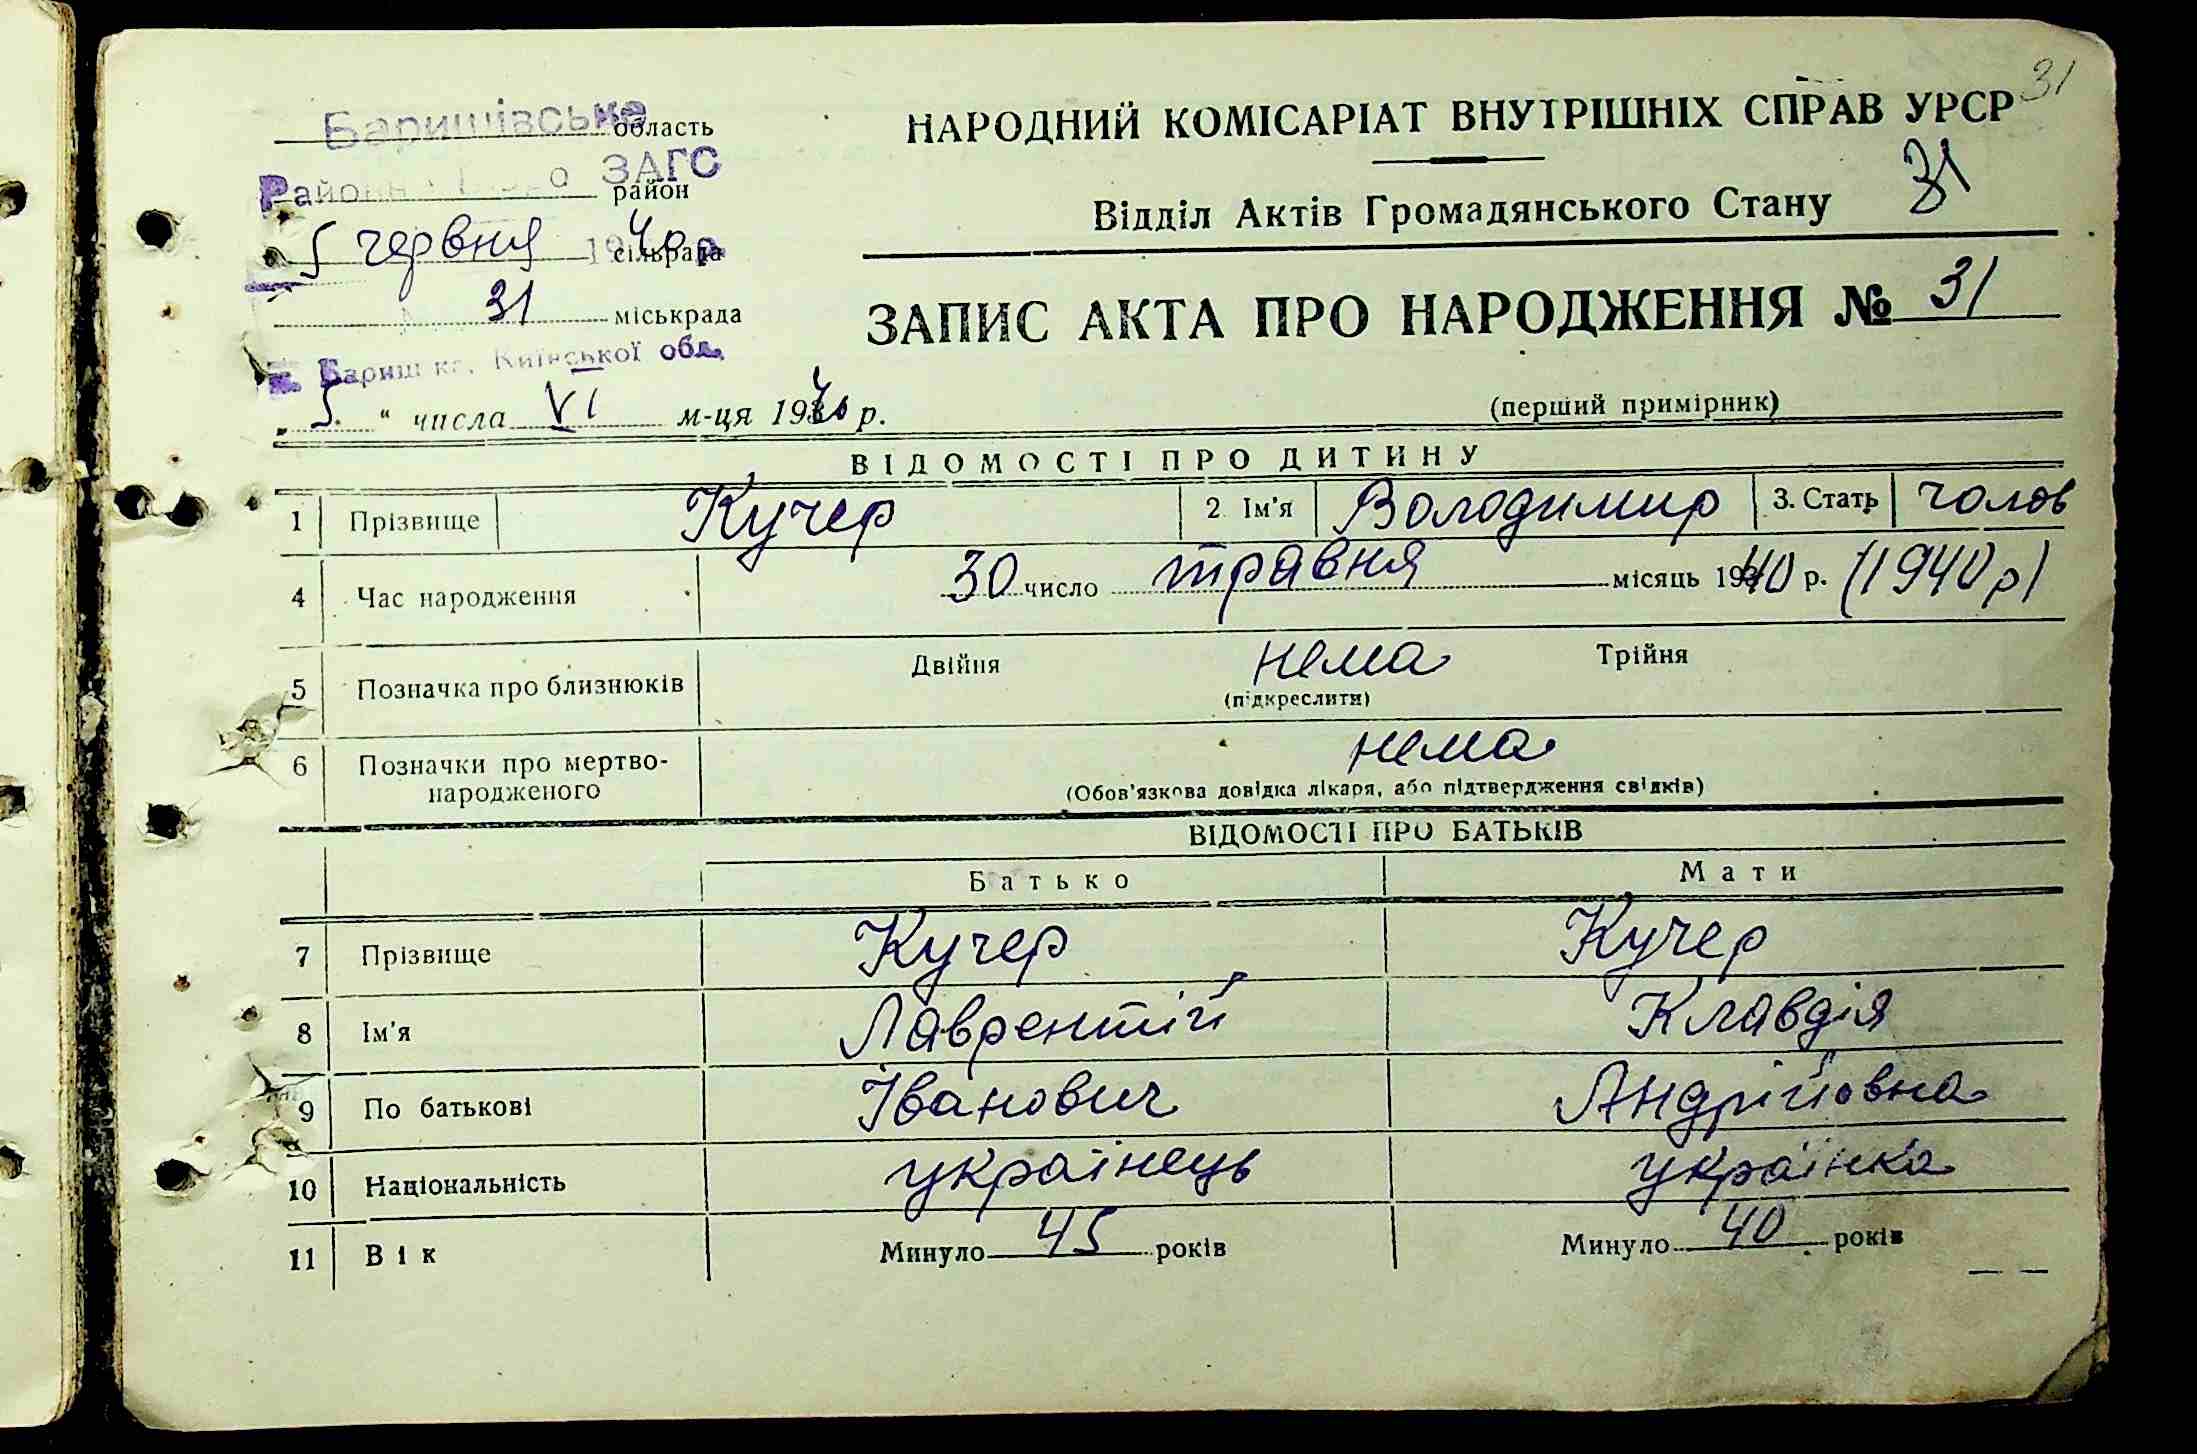 31
Баришівське область
НАРОДНИЙ КОМІСАРІАТ ВНУТРІШНІХ СПРАВ УРСР
ЗАГС
район
Відділ Актів Громадянського Стану 31
5 червня 1940 р сільрада
31 міськрада
ЗАПИС АКТА ПРО НАРОДЖЕННЯ № 31
Київської обл.
„ 5. “ числа VI м-ця 1940 р.
(перший примірник)
ВІДОМОСТІ ПРО ДИТИНУ
1 Прізвище Кучер 2. Ім'я Володимир 3. Стать чолов
4 Час народження 30 число травня місяць 1940 р. (1940 р)
5 Позначка про близнюків Двійня нема Трійня
(підкреслити)
6 Позначки про мертво-
народженого
нема
(Обов'язкова довідка лікаря, або підтвердження свідків)
ВІДОМОСТІ ПРО БАТЬКІВ
Батько Мати
7 Прізвище Кучер Кучер
8 Ім'я Лаврентій Клавдія
9 По батькові Іванович Андрійовна
10 Національність українець українка
11 Вік Минуло 45 років Минуло 40 років